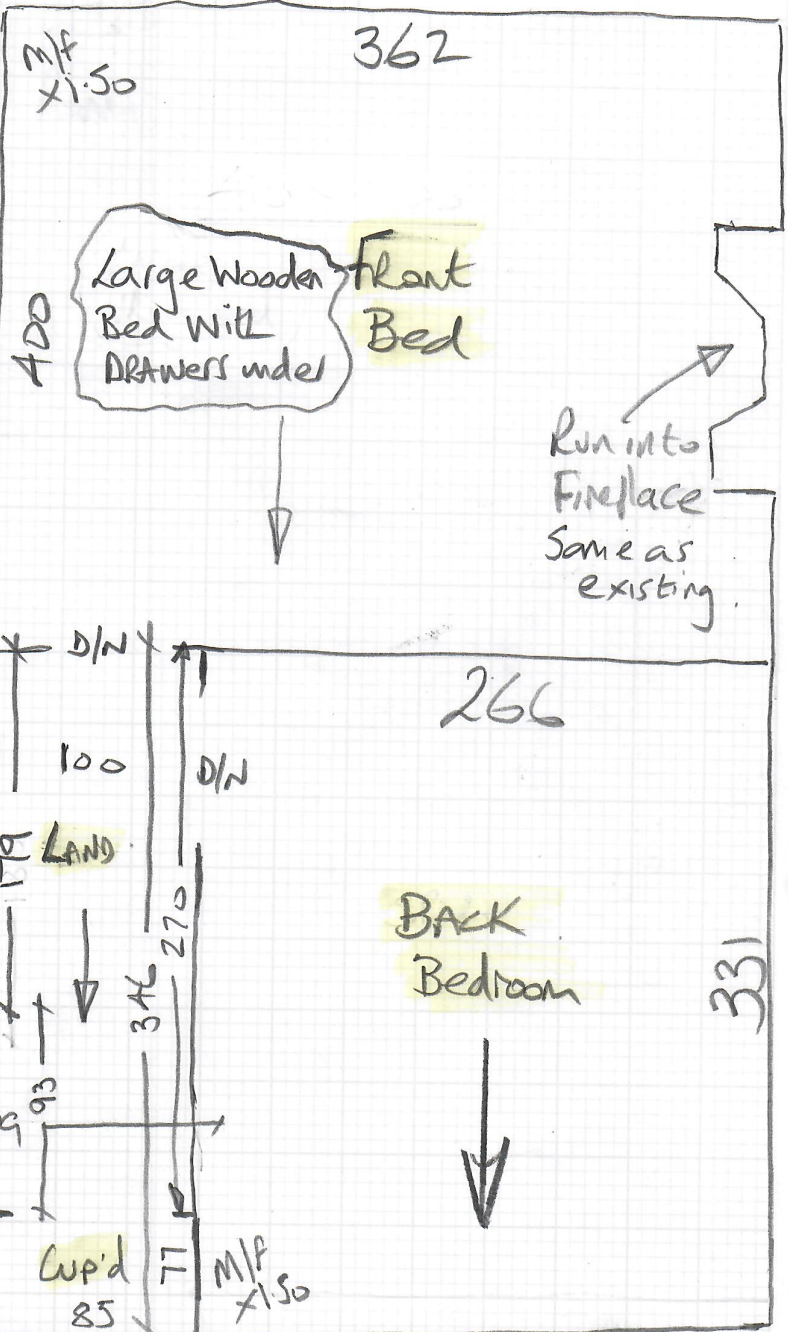 362
m/f
x1.50
Large Wooden
Bed With
DRAWERS under
Front
Bed
400
Run into
Fireplace
Same as
existing.
D/N
266
100
D/N
LAND
179
270
BACK
Bedroom
346
331
93
Cup'd
85
77
M/f
x1.50